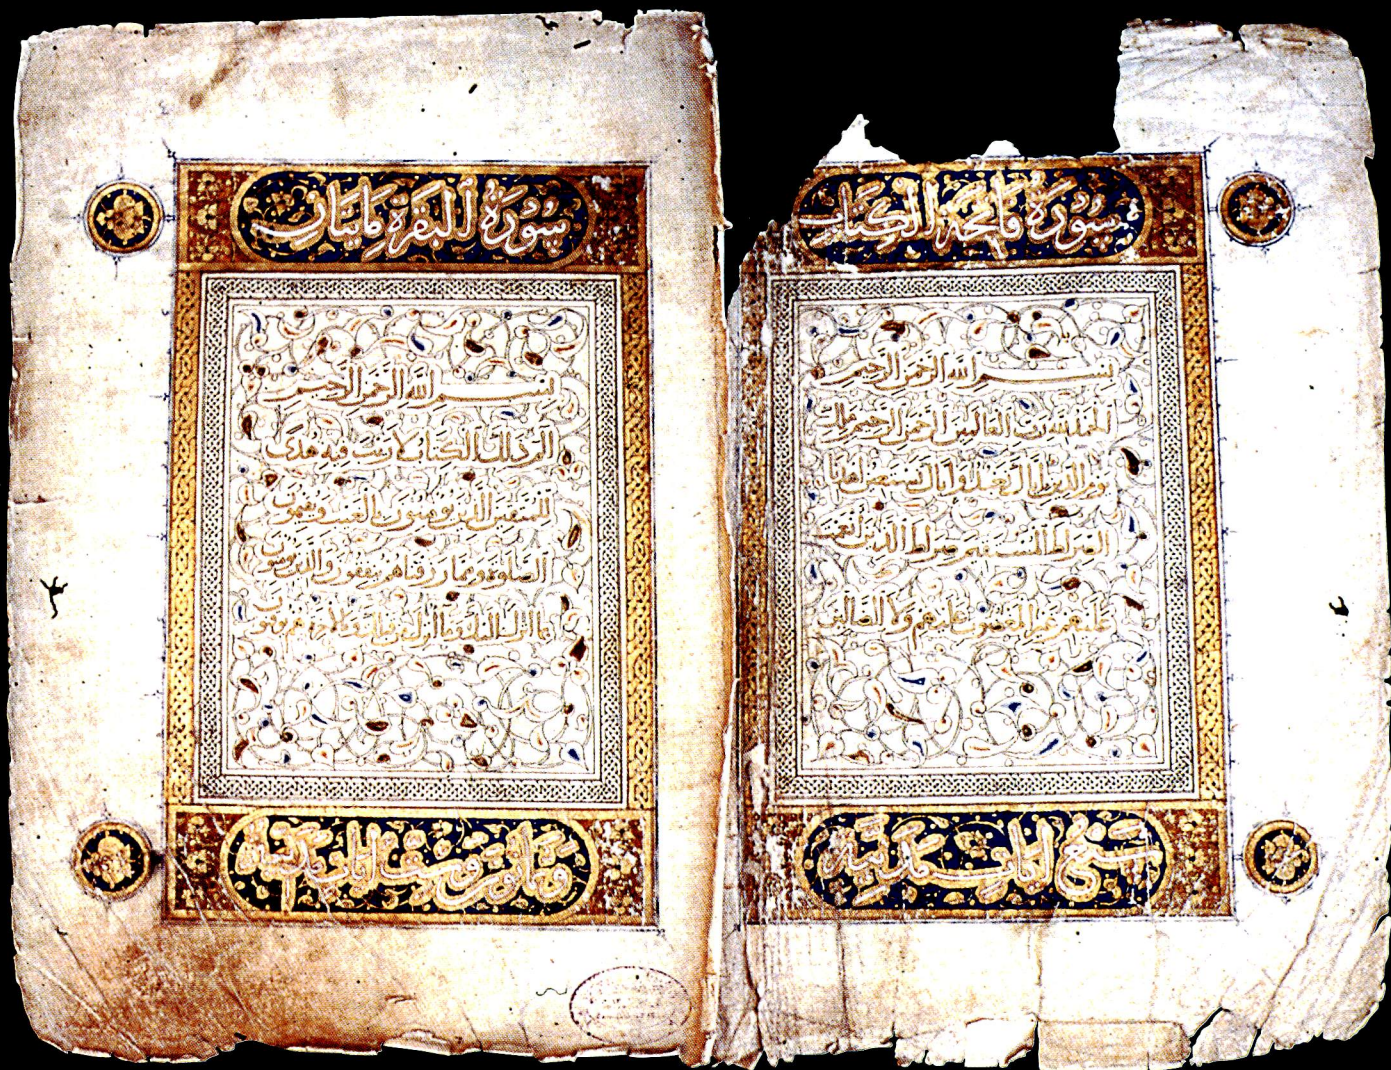 سُورَةُ فَاتِحَةِ الْكِتَابِ
بسم الله الرحمن الرحيم
الحمد لله رب العالمين الرحمن الرحيم مالك
يوم الدين اياك نعبد واياك نستعين اهدنا
الصراط المستقيم صراط الذين انعمت
عليهم غير المغضوب عليهم ولا الضالين
سبع ايات مدنية
سُورَةُ الْبَقَرَةِ مايتان
بسم الله الرحمن الرحيم
الم ذلك الكتاب لا ريب فيه هدى
للمتقين الذين يؤمنون بالغيب ويقيمون
الصلوة ومما رزقناهم ينفقون والذين يؤمنون
بما انزل اليك وما انزل من قبلك وبالاخرة هم يوقنون
وثمانون وست ايات مدنية